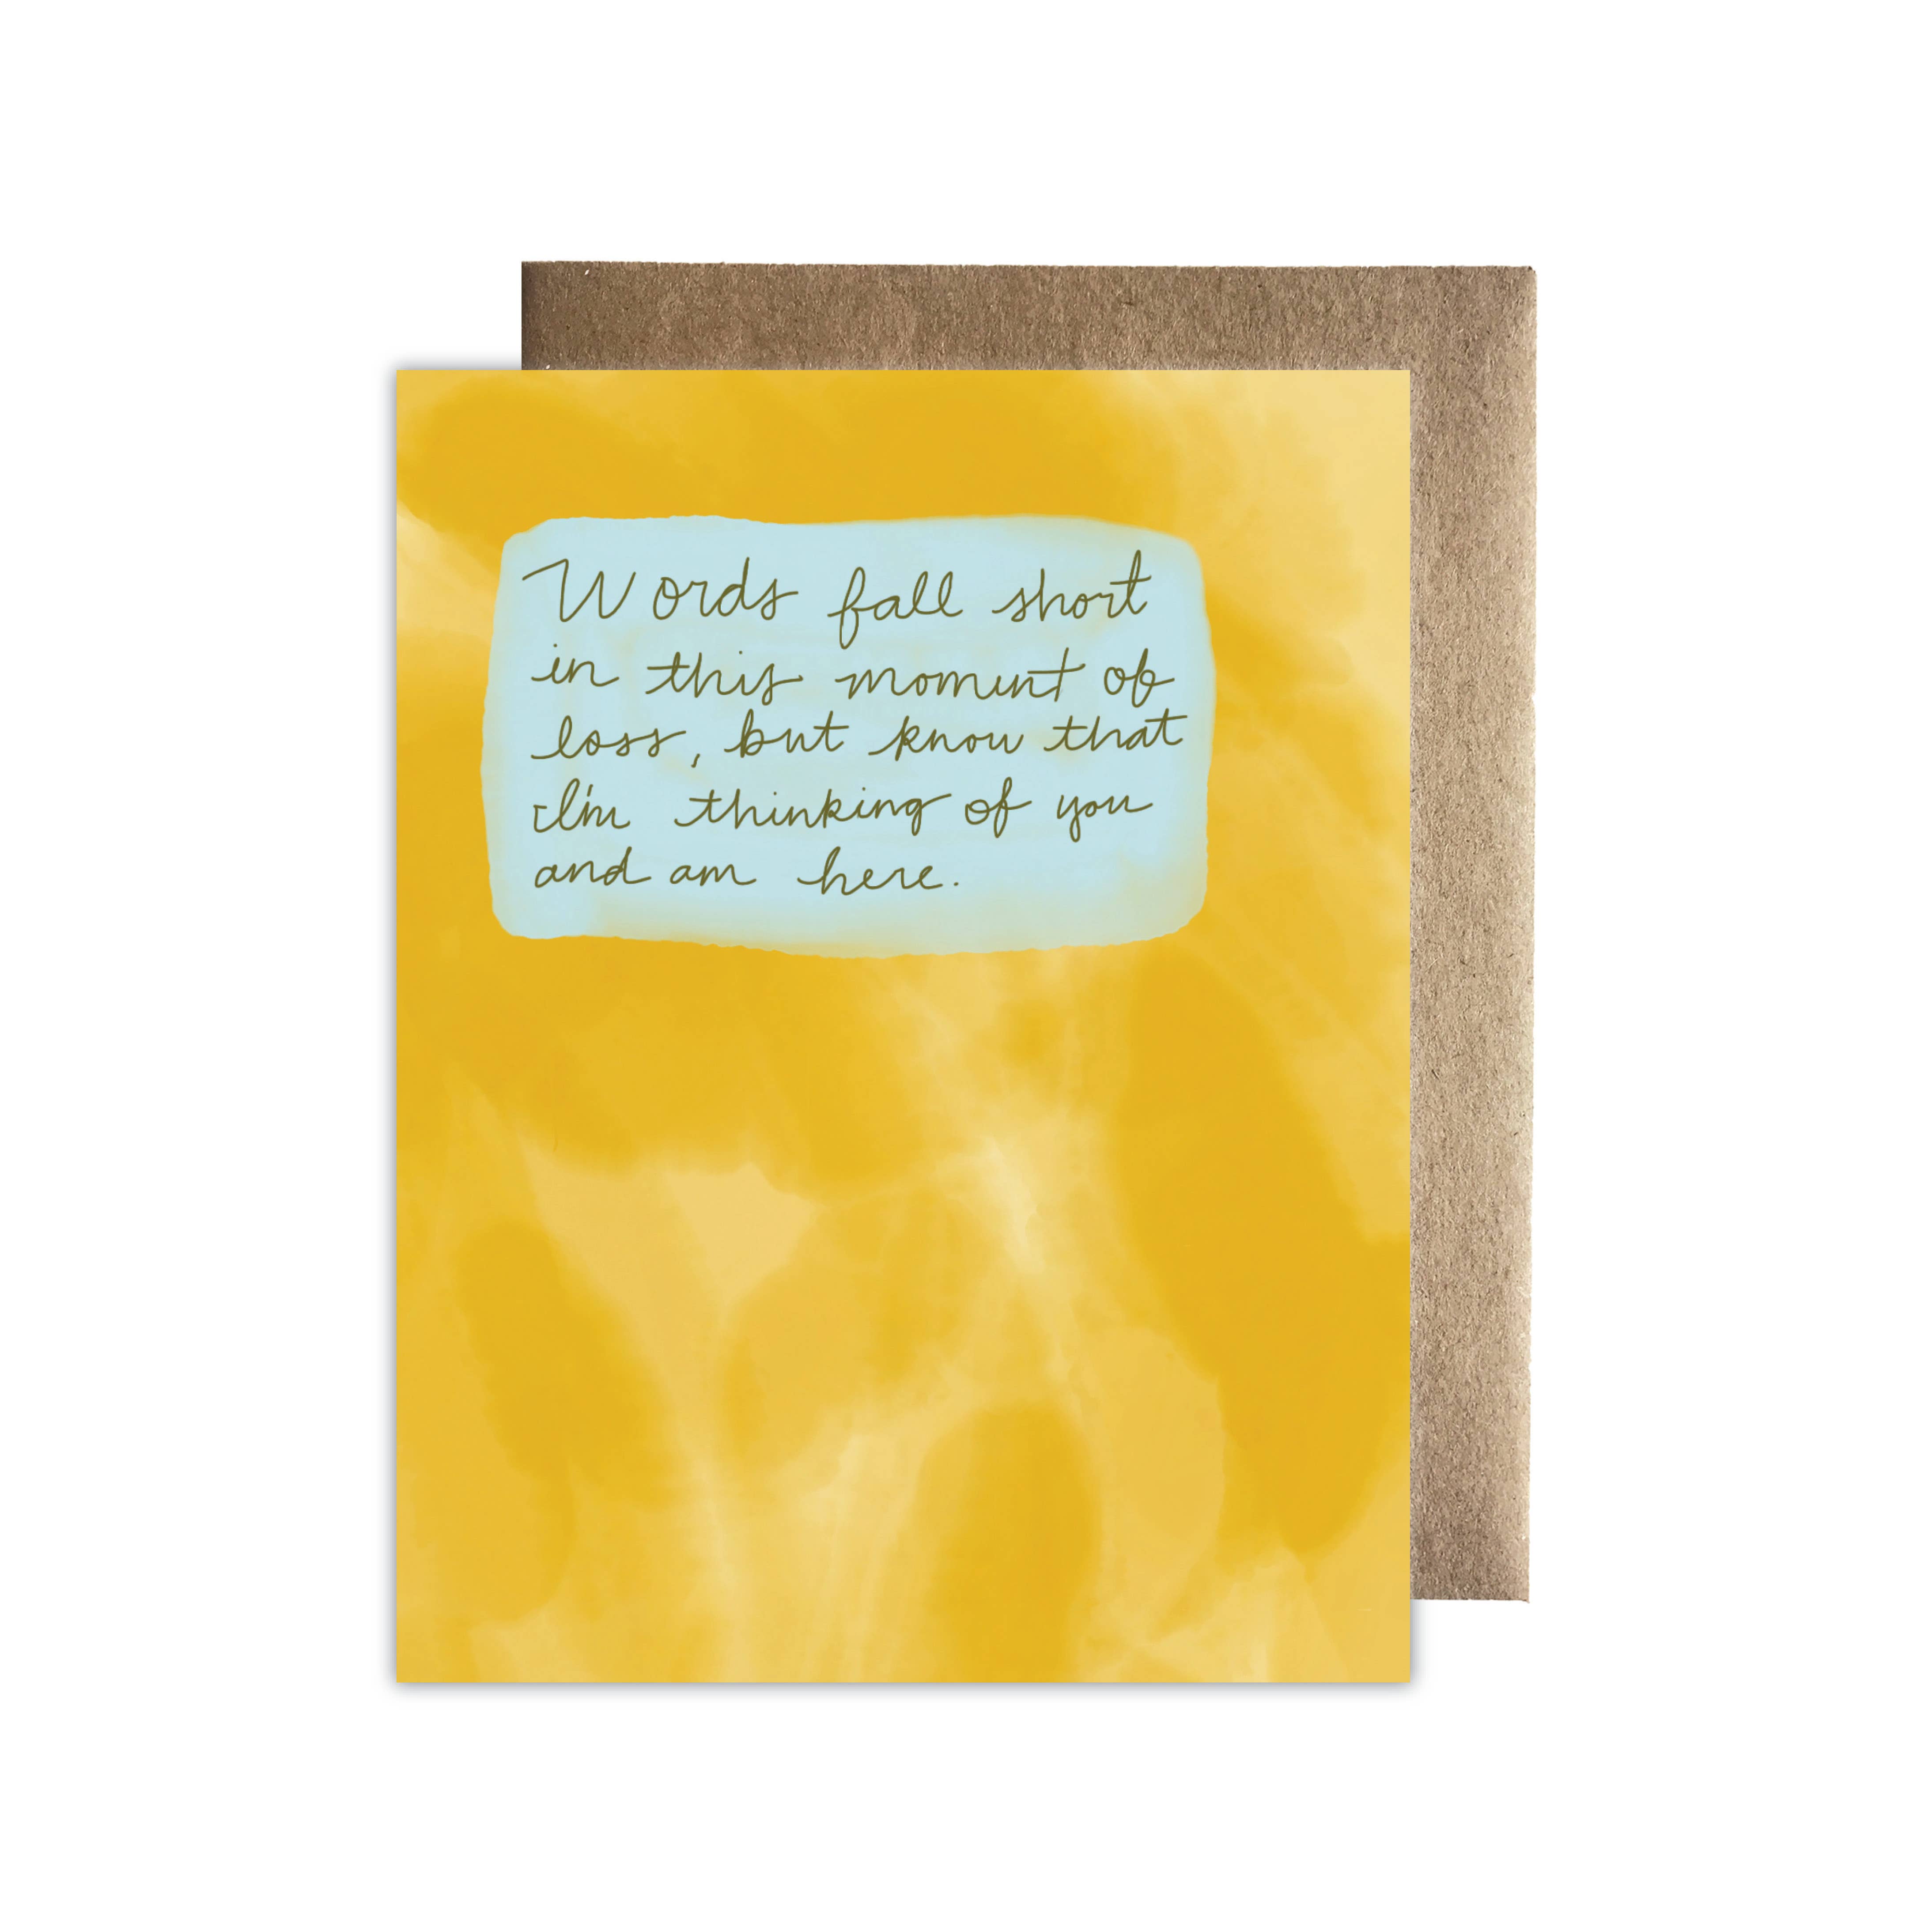 Words fall short
in this moment of
loss, but know that
I'm thinking of you
and am here.